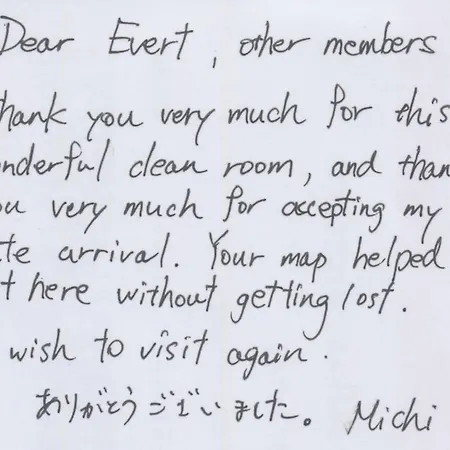 Dear Evert, other members
hank you very much for this
nderful clean room, and than
ou very much for accepting my
te arrival. Your map helped
t here without getting lost.
wish to visit again.
ありがとうございました。 Michi